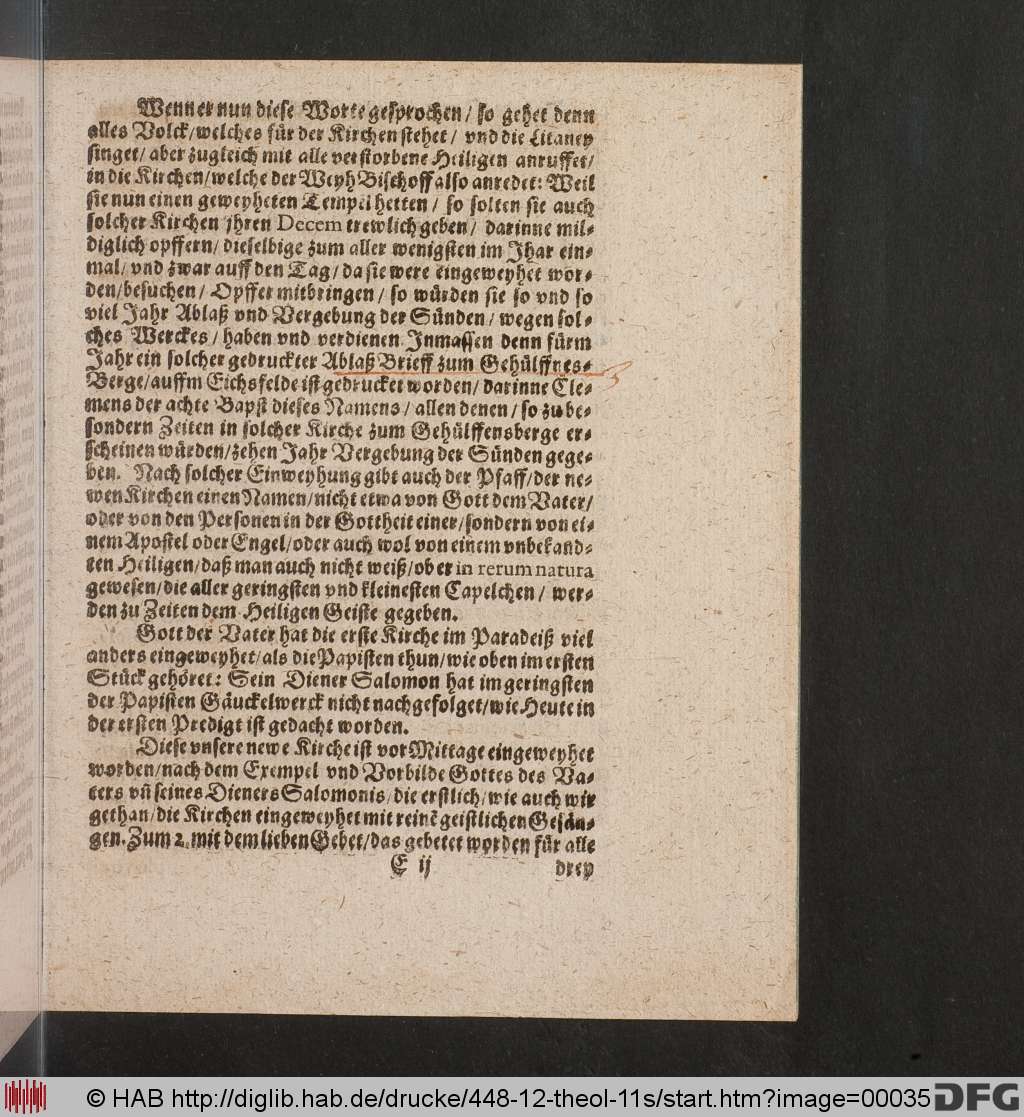 Wenn er nun diese Worte gesprochen / so gehet denn
alles Volck / welches für der Kirchen stehet / vnd die Litaney
singet / aber zugleich mit alle verstorbene Heiligen anruffet /
in die Kirchen / welche der Weyh Bischoff also anredet: Weil
sie nun einen geweyheten Tempel hetten / so solten sie auch
solcher Kirchen jhren Decem trewlich geben / darinne mil-
diglich opffern / dieselbige zum aller wenigsten im Jhar ein-
mal / vnd zwar auff den Tag / da sie were eingeweyhet wor-
den / besuchen / Opffer mitbringen / so würden sie so vnd so
viel Jahr Ablaß vnd Vergebung der Sünden / wegen sol-
ches Werckes / haben vnd verdienen. Inmassen denn fürm
Jahr ein solcher gedruckter Ablaß Brieff zum Gehülffnes-
Berge / auffm Eichsfelde ist gedrucket worden / darinne Cle-
mens der achte Bapst dieses Namens / allen denen / so zu be-
sondern Zeiten in solcher Kirche zum Gehülffensberge er-
scheinen würden / zehen Jahr Vergebung der Sünden gege-
ben. Nach solcher Einweyhung gibt auch der Pfaff / der ne-
wen Kirchen einen Namen / nicht etwa von Gott dem Vater /
oder von den Personen in der Gottheit einer / sondern von ei-
nem Apostel oder Engel / oder auch wol von einem vnbekand-
ten Heiligen / daß man auch nicht weiß / ob er in rerum natura
gewesen / die aller geringsten vnd kleinesten Capelchen / wer-
den zu Zeiten dem Heiligen Geiste gegeben.
Gott der Vater hat die erste Kirche im Paradeiß viel
anders eingeweyhet / als die Papisten thun / wie oben im ersten
Stück gehöret: Sein Diener Salomon hat im geringsten
der Papisten Gäuckelwerck nicht nachgefolget / wie Heute in
der ersten Predigt ist gedacht worden.
Diese vnsere newe Kirche ist vor Mittage eingeweyhet
worden / nach dem Exempel vnd Vorbilde Gottes des Va-
ters vñ seines Dieners Salomonis / die erstlich / wie auch wir
gethan / die Kirchen eingeweyhet mit reinē geistlichen Gesän-
gen. Zum 2. mit dem lieben Gebet / das gebetet worden für alle
E ij drey
© HAB http://diglib.hab.de/drucke/448-12-theol-11s/start.htm?image=00035 DFG